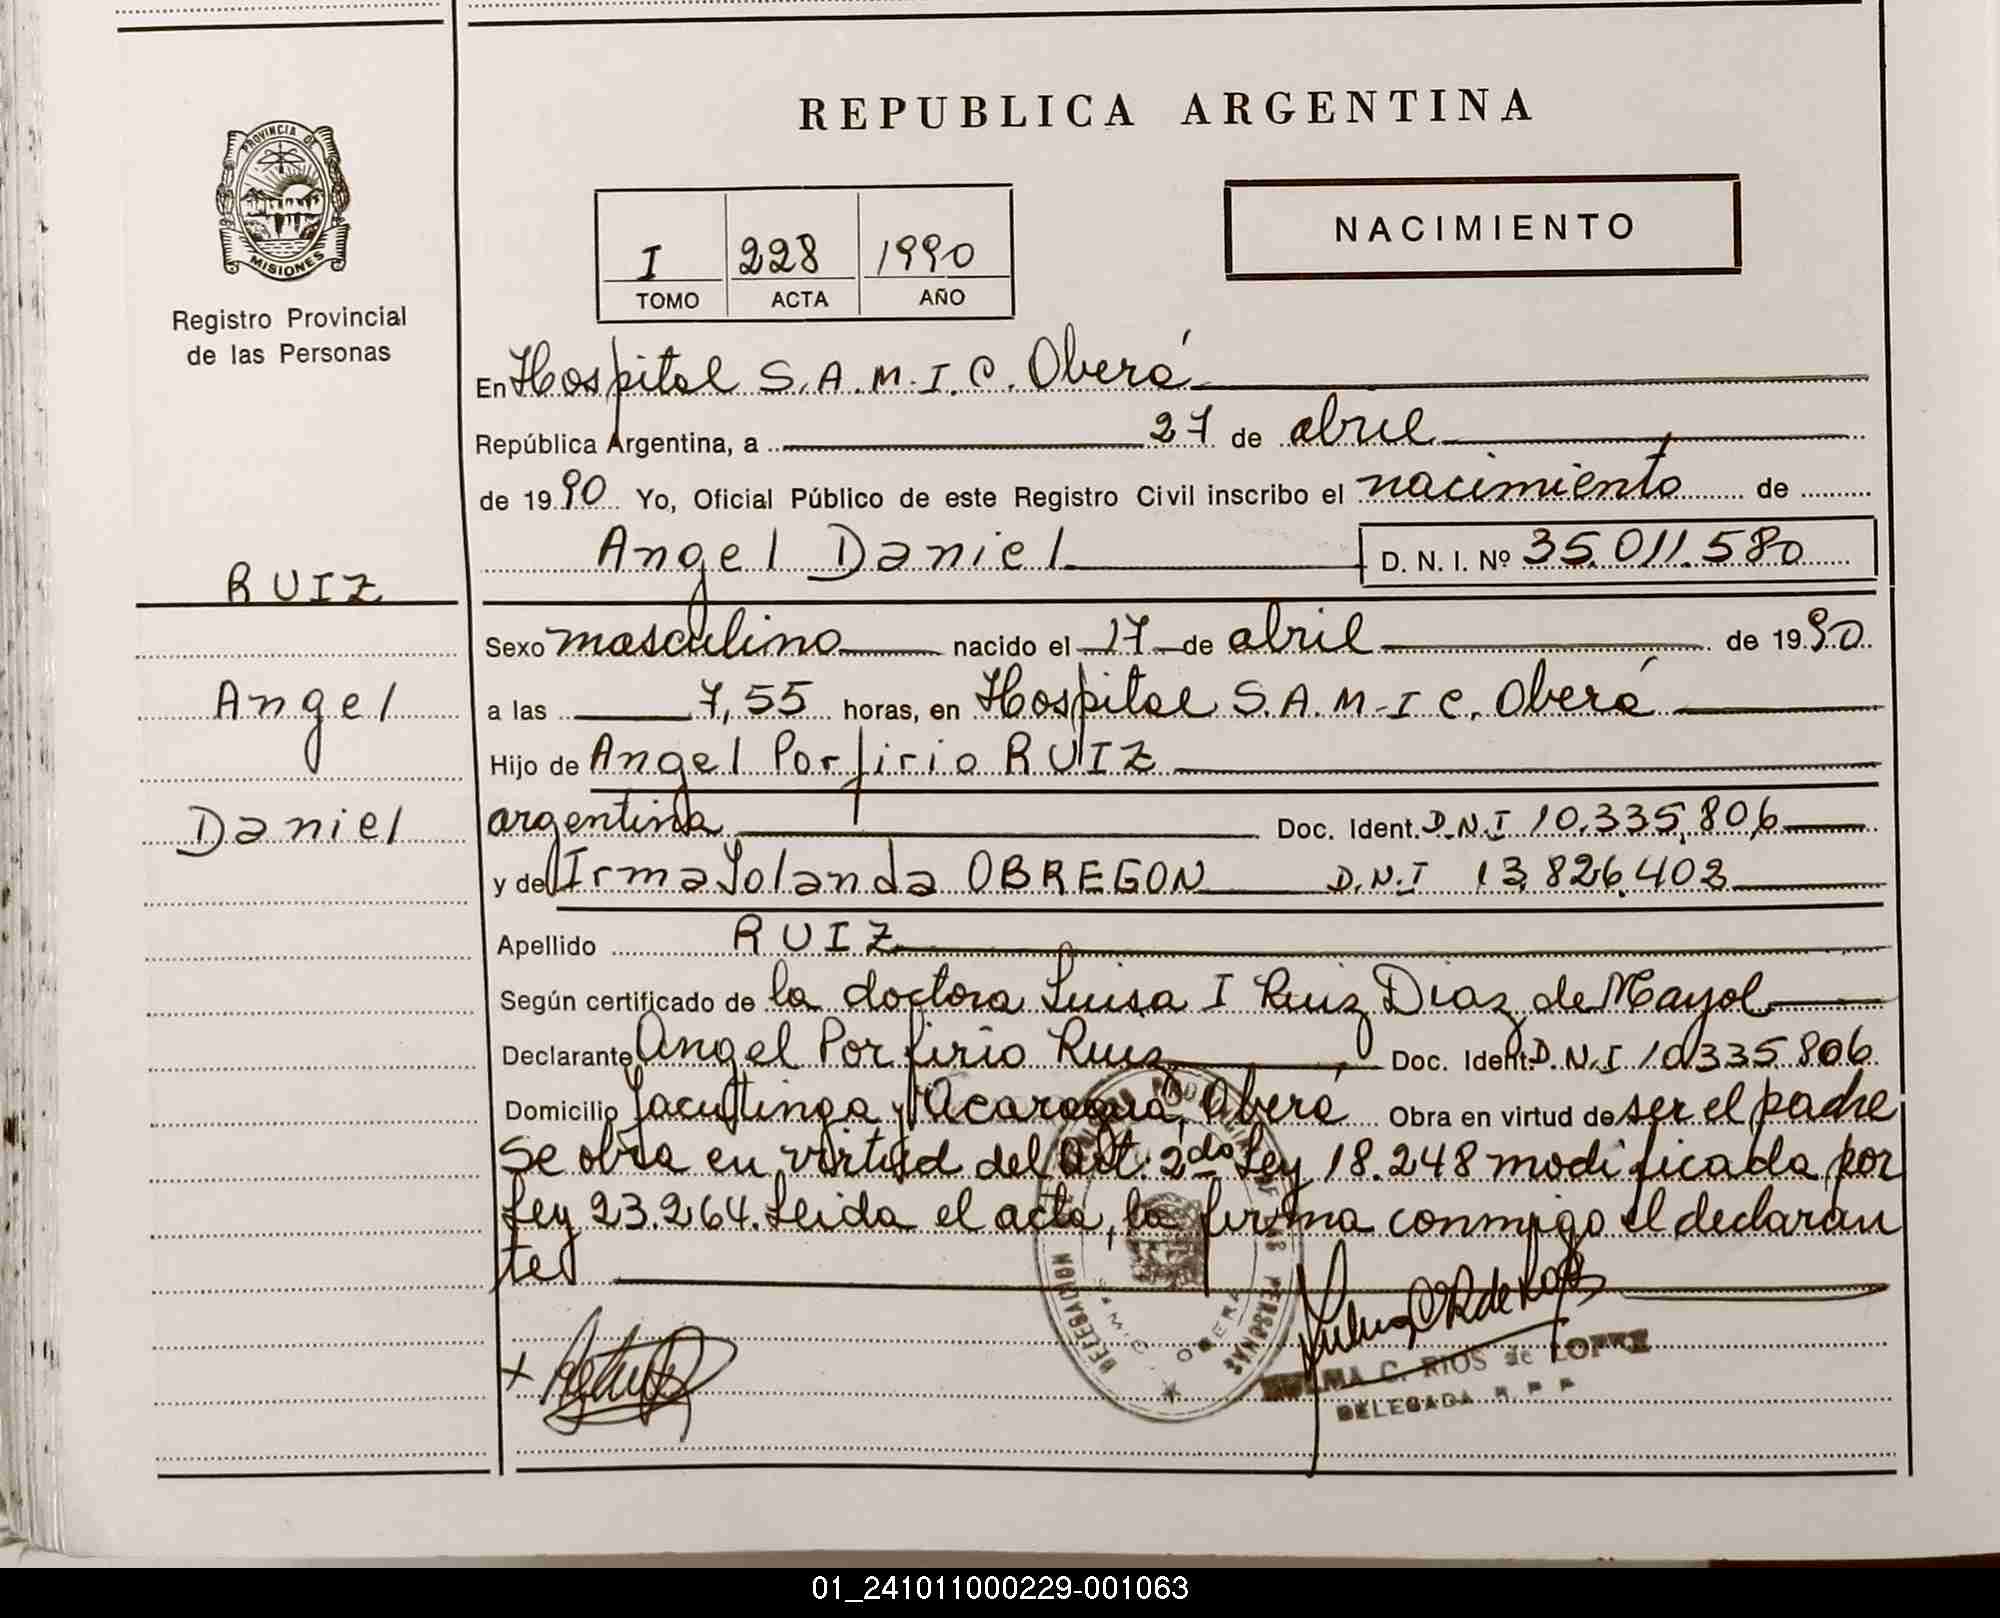 REPUBLICA ARGENTINA
PROVINCIA DE
MISIONES
Registro Provincial
de las Personas
I 228 1990
TOMO ACTA AÑO
NACIMIENTO
En Hospital S.A.M.I.C. Oberá
República Argentina, a 27 de abril
de 1990 Yo, Oficial Público de este Registro Civil inscribo el nacimiento de
Angel Daniel D. N. I. Nº 35.011.580
RUIZ
Angel
Daniel
Sexo masculino nacido el 17 de abril de 1990
a las 7,55 horas, en Hospital S.A.M.I C. Oberá
Hijo de Angel Porfirio RUIZ
argentina Doc. Ident. D.N.I 10.335.806
y de Irma Yolanda OBREGON D.N.I 13.826.403
Apellido RUIZ
Según certificado de la doctora Luisa I Ruiz Diaz de Mayol
Declarante Angel Porfirio Ruiz Doc. Ident. D.N.I 10.335.806
Domicilio Yacutinga y Acaraguá, Oberá Obra en virtud de ser el padre
Se obra en virtud del Art. 2do Ley 18.248 modificada por
Ley 23.264. Leida el acta, la firma conmigo el declaran
te
DELEGACION PERSONAS
SAMIC OBERA
C. RIOS de LOPEZ
DELEGADA R. P. P.
01_241011000229-001063